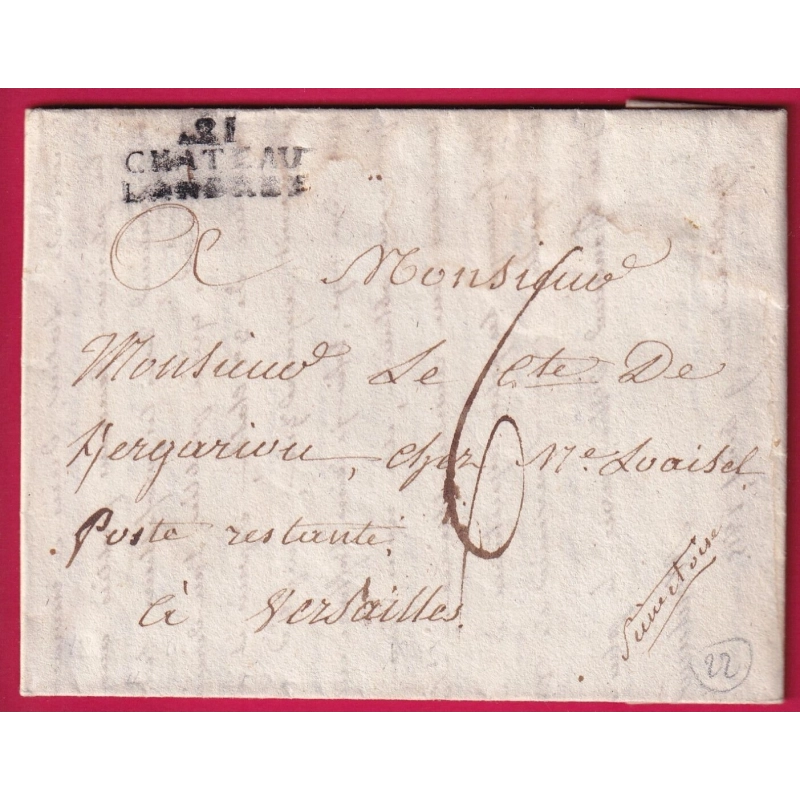 21
CHATEAU
LANDREN
A Monsieur
Monsieur Le Cte De
Kergariou, chez Me Loaisel
Poste restante,
à Versailles.
6
Seine et oise
22